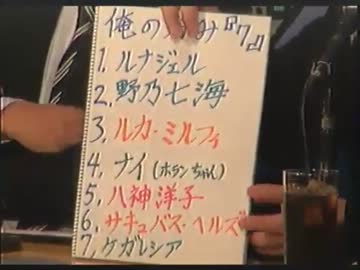 俺の好み『7』
1. ルナジェル
2. 野乃七海
3. ルカ・ミルフィ
4. ナイ(ホランちゃん)
5. 八神洋子
6. サキュバス・ヘルズ
7. ケガレシア